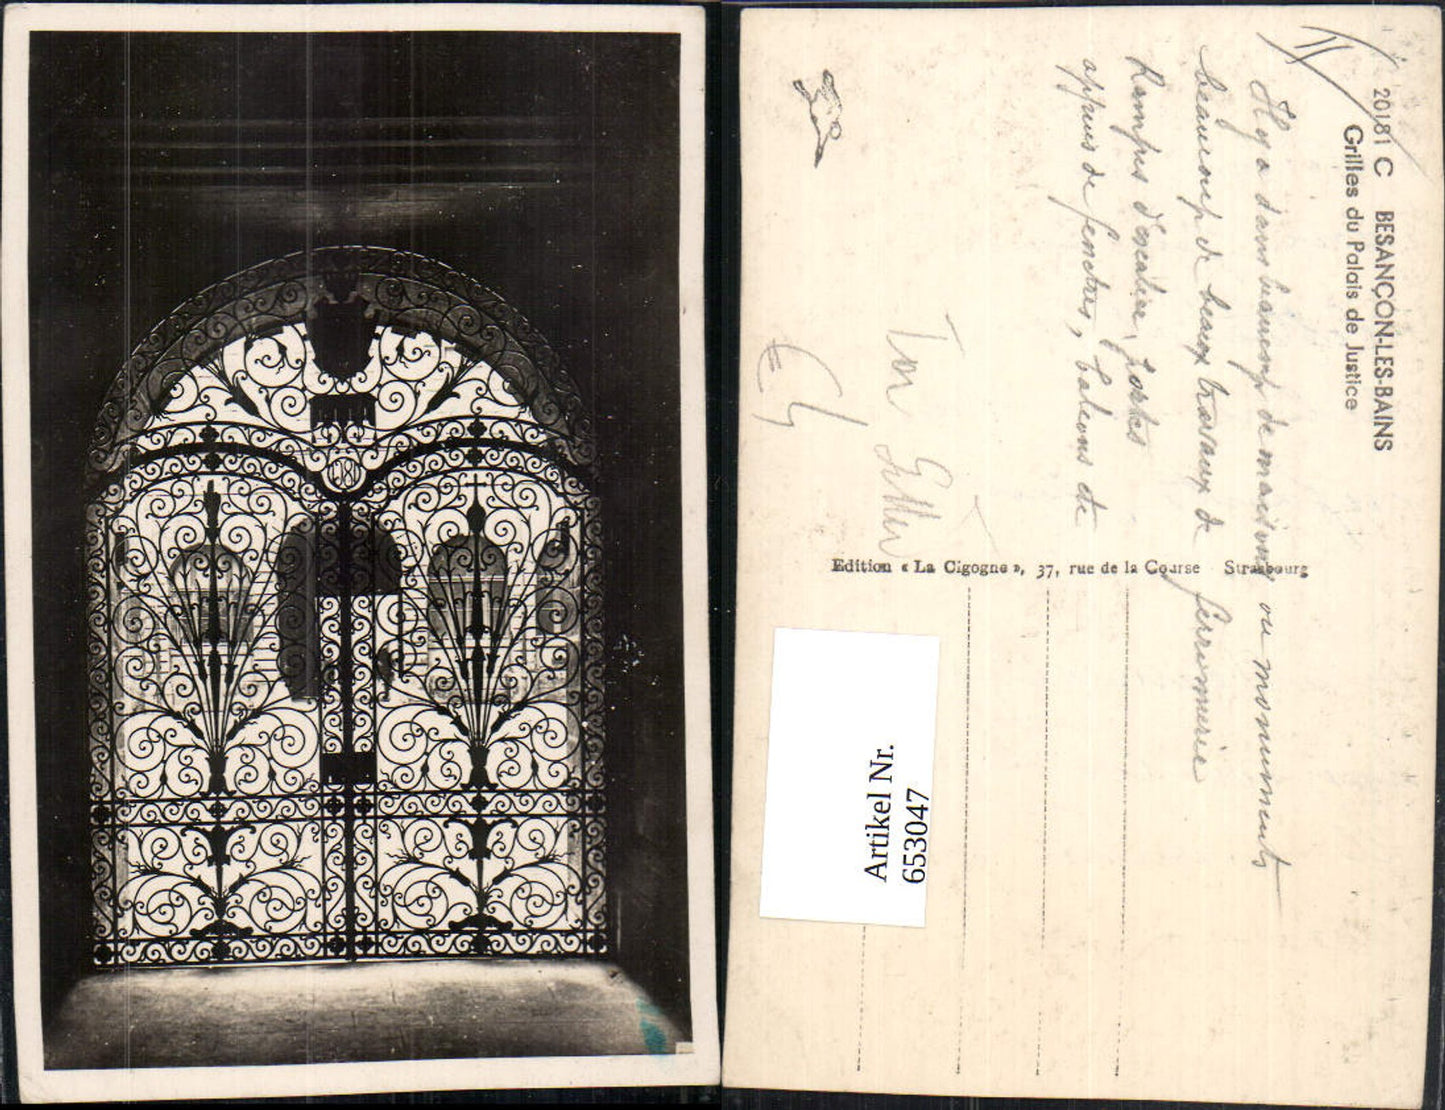 20181 C BESANÇON-LES-BAINS
Grilles du Palais de Justice
Il y a dans beaucoup de maisons ou monuments
beaucoup de beaux travaux de ferronnerie
Rampes d'escalier, portes
appuis de fenêtres, balcons etc
Tor Gitter
Edition « La Cigogne », 37, rue de la Course Strasbourg
Artikel Nr.
653047